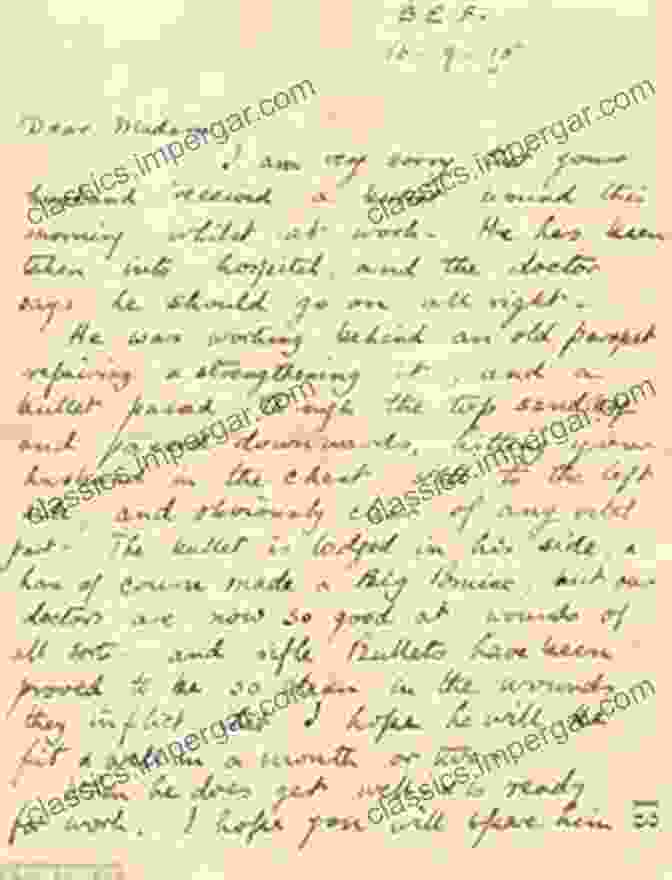 B E F.
16 - 9 - 15
Dear Madam
I am very sorry that your
husband received a wound this
morning whilst at work. He has been
taken into hospital, and the doctor
says he should go on all right.
He was working behind an old parapet
repairing & strengthening it, and a
bullet passed through the top sandbag
and passed downwards, hitting your
husband in the chest to the left
side, and obviously clear of any vital
part. The bullet is lodged in his side, &
has of course made a Big Bruise, but our
doctors are now so good at wounds of
all sorts and rifle Bullets have been
proved to be so clean in the wounds
they inflict that I hope he will be
fit & well in a month or two.
When he does get well & is ready
for work. I hope you will spare him
13
classics.impergar.com
classics.impergar.com
classics.impergar.com
classics.impergar.com
classics.impergar.com
classics.impergar.com